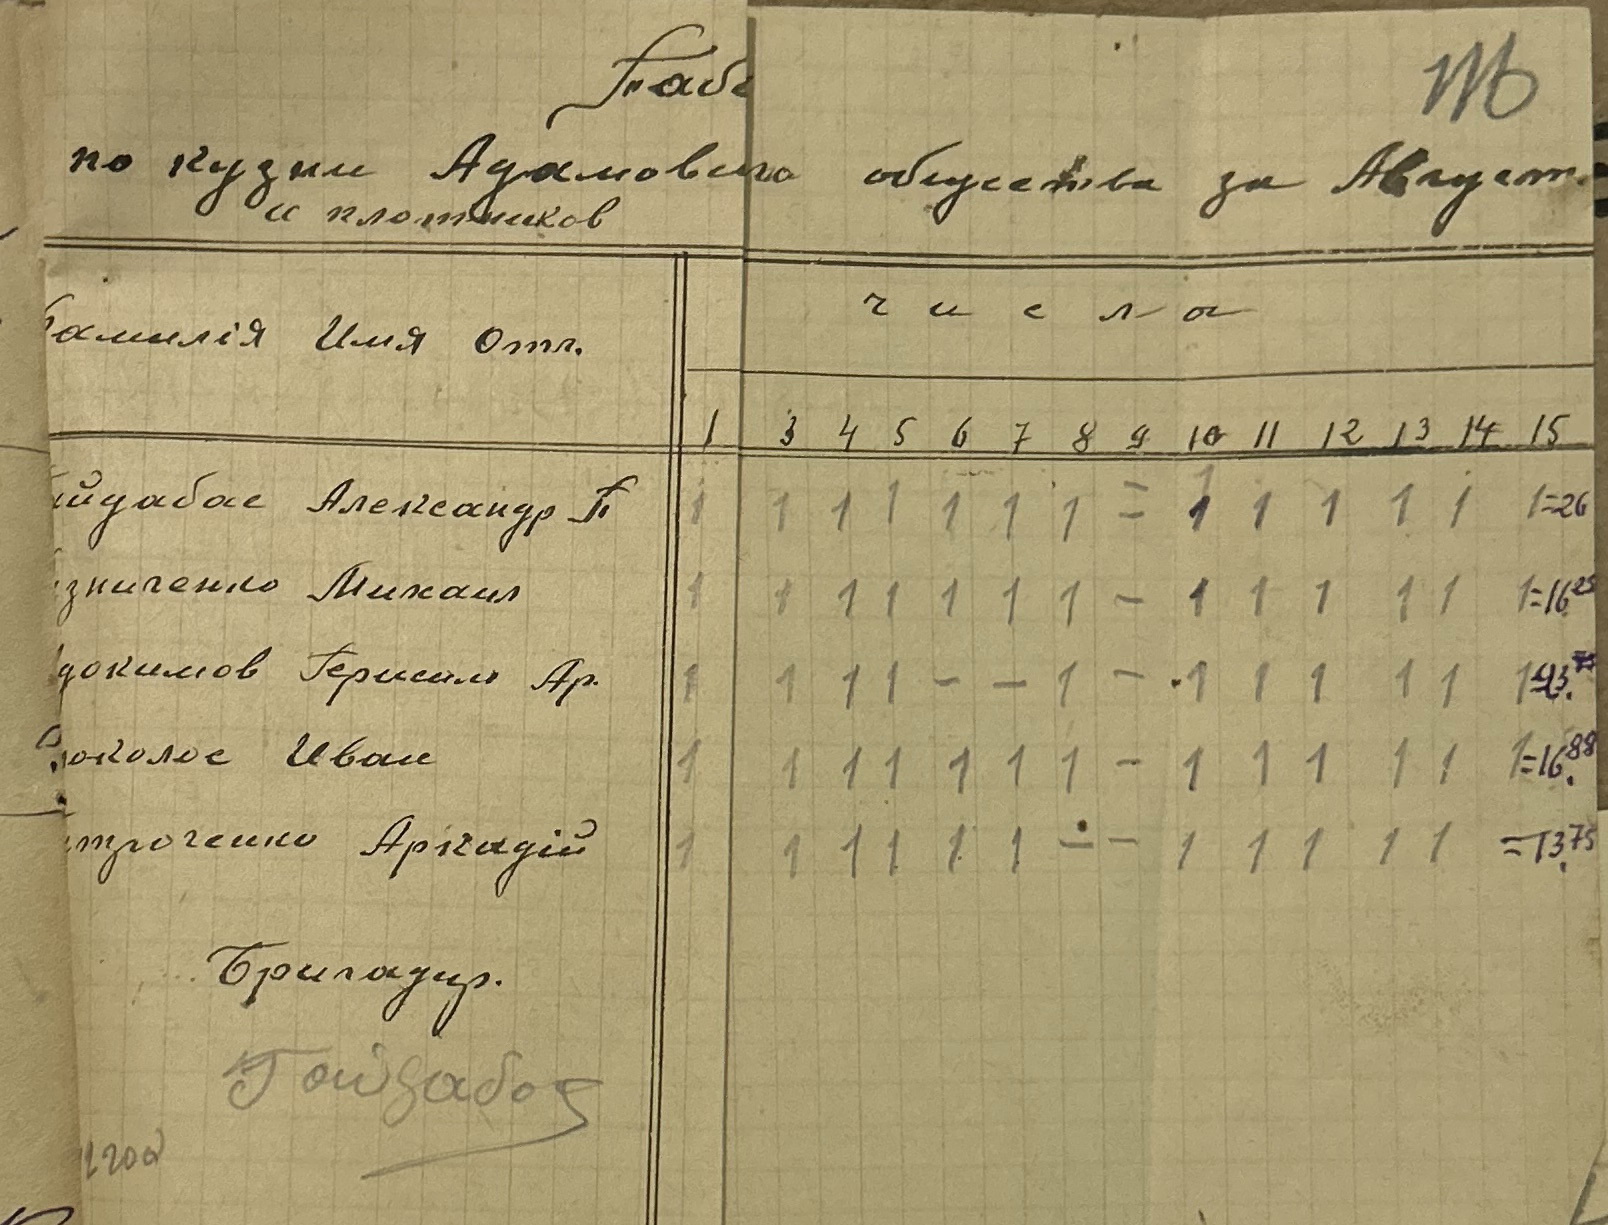 Табе
по кузни Адамовича общества за Август.
и плотников
Фамилія Имя Отч.
числа
1 3 4 5 6 7 8 9 10 11 12 13 14 15
айдабас Александр П 1 1 1 1 1 1 1 = 1 1 1 1 1 1=26
зниченко Михаил 1 1 1 1 1 1 1 - 1 1 1 1 1 1=16.25
докимов Герасим Ар. 1 1 1 1 - - 1 - 1 1 1 1 1
околос Иван 1 1 1 1 1 1 1 - 1 1 1 1 1 1=16.88
троченко Аркадій 1 1 1 1 1 1 - - 1 1 1 1 1 =13.75
Бригадир.
Гайдабас